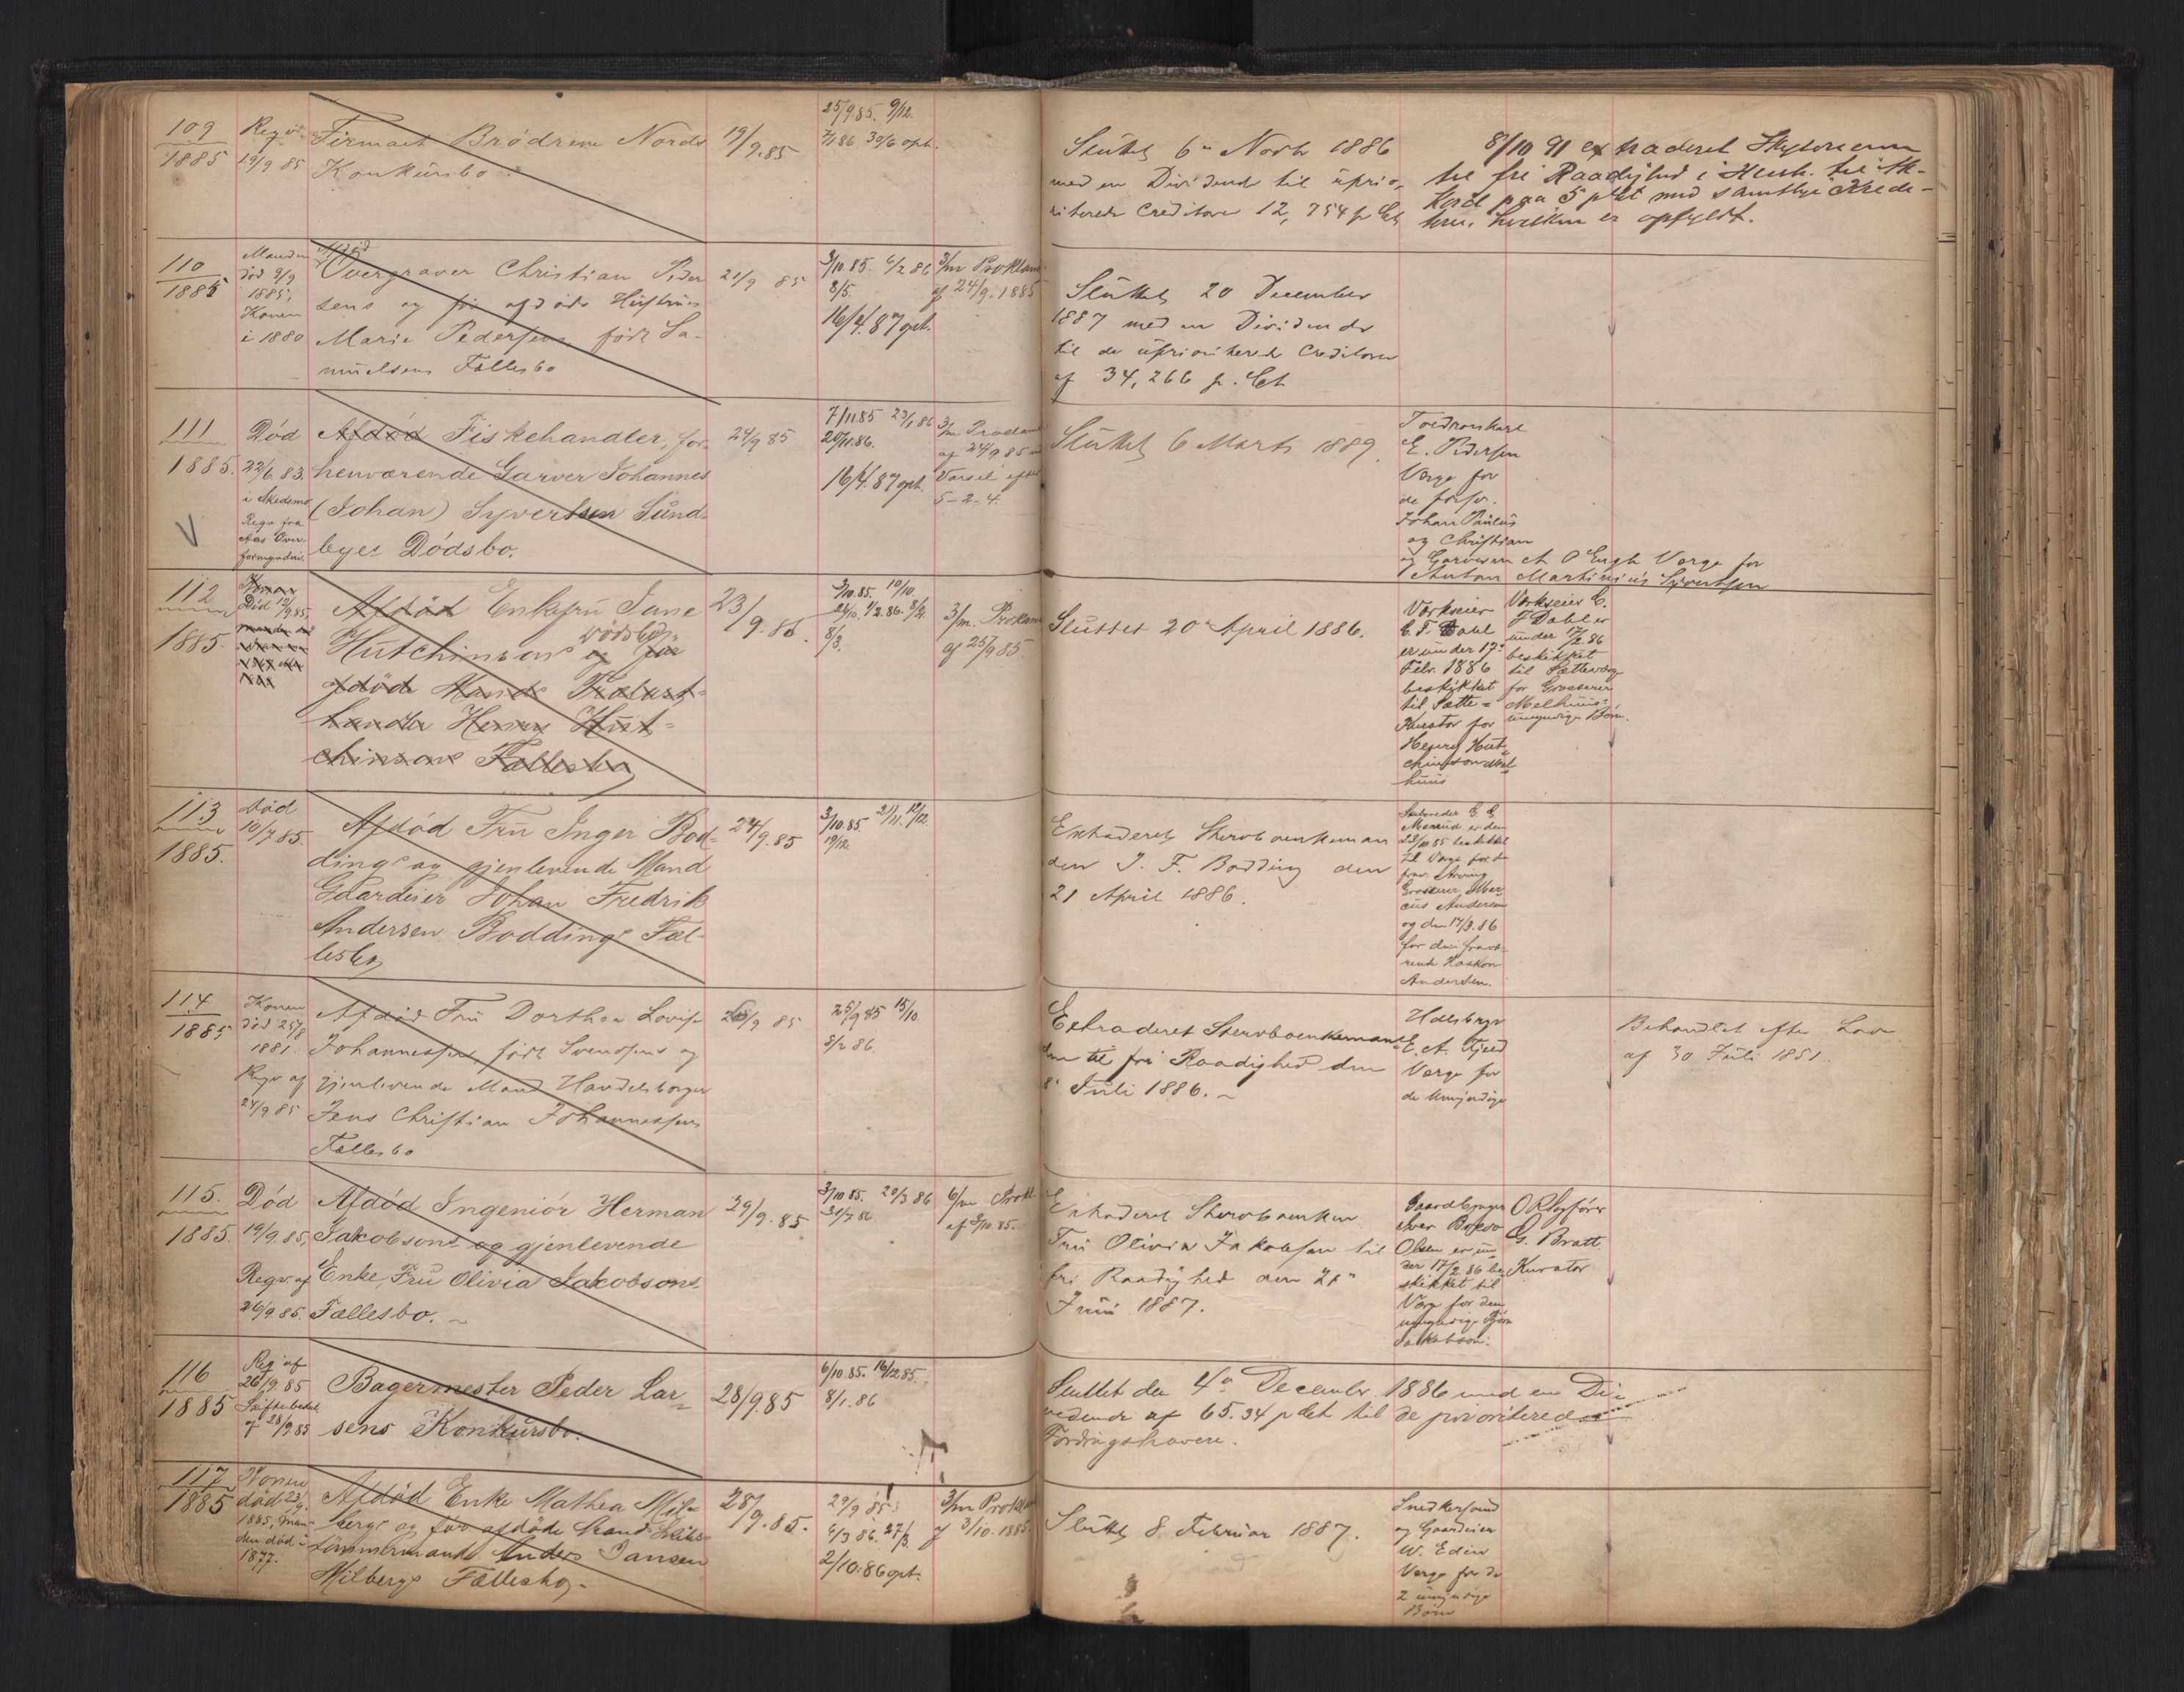 109
1885
Reqv.
19/9 85
Firmaet Brødrene Nords
Konkursbo
19/9.85
25/9.85. 9/12.
30/6 opt.
Sluttet 6te Novb 1886
med en Dividende til uprio-
riterede Creditorer 12,754 p Ct
8/10 91 extraderet
til fri Raadighed i Henh. til Ak-
kord paa 5 pCt med samtlige Kredi-
torer, hvilken er opfyldt.
110
1885
Manden
død 9/9
1885,
Konen
i 1880
Afdød
Overgraver Christian Peder
sens og før afdøde Hustru
Marie Pedersens født Sa-
muelsens Fællesbo
21/9 85
3/10.85. 6/2 86
8/5
16/4.87 opt.
3/m Proklama
af 24/9.1885
Sluttet 20 December
1887 med en Dividende
til de uprioriterede Creditorer
af 34,266 p. Ct
111
1885.
Død
22/6 83.
i Skedsmo
Reqv fra
Aas Over-
formynderi.
V
Afdød Fiskehandler, for-
henværende Garver Johannes
(Johan) Syvertsen Sund-
byes Dødsbo.
24/9 85
7/11.85 23/1 86
20/11.86.
16/4.87 opt.
3/m Proclama
af 24/9 85
Varsel efter
5-2-4.
Sluttet 6 Marts 1889.
E. Pedersen
Værge for
de
Johan Paulus
og Christian
og Garver O Engh Værge for
Anton Martinius Syvertsen
112
1885.
Konen
Død 12/9 85,
Afdød Enkefru Jane
Hutchinsons Dødsbo og før
afdøde Mands Trælast-
handler Henry Hut-
chinsons Fællesbo
23/9.85.
3/10.85. 10/10.
8/3.
3/m. Proklama
af 25/9 85.
Sluttet 20de April 1886.
Værkseier
C. F. Dahl
er under 17de
Febr. 1886
beskikket
til Sætte-
Kurator for
Henry Hut-
chinson
Værkseier C.
F Dahl er
under 17/2 86
beskikket
til Sætteværge
for Grosserer
umyndige Børn.
113
1885.
Død
10/7 85.
Afdød Fru Inger Bod-
dings og gjenlevende Mand
Gaardeier Johan Fredrik
Andersen Boddings Fæl-
lesbo
24/9.85
3/10.85. 21/11. 12/12.
19/12.
Extraderet Stervboenkeman
den J. F. Bodding den
21 April 1886.
er den
23/10 85 beskikket
til Værge for
Arving
Grosserer Mar-
cus Andersen
og den 17/3.86
for den fravæ-
rende Haakon
Andersen.
114
1885
Konen
død 25/8
1881.
Reqv af
24/9 85
Afdød Fru Dorthea Lovise
Johannessens, født Svendsens og
gjenlevende Mand Handelsborger
Jens Christian Johannessens
Fællesbo
9 85
25/9 85 15/10.
8/2 86.
Extraderet Stervboenkeman-
den til fri Raadighed den
8de Juli 1886.
E. A. Fjeld
Værge for
de Umyndige
Behandlet efter Lov
af 30 Juli 1851.
115.
1885.
Død
19/9.85,
Reqv. af
26/9 85.
Afdød Ingeniør Herman
Jakobsons og gjenlevende
Enke, Fru Olivia Jakobsons
Fællesbo.
29/9.85
3/10 85. 20/3 86
31/7 86
6/m Prokl
af 3/10.85.
Extraderet Stervboenken
Fru Olivia Jakobson til
fri Raadighed den
Juni 1887.
Gaardbruger
Iver
Olsen er un-
der 17/2 86 be-
skikket til
Værge for den
umyndige
Jakobson.
ORSagfører
G. Bratt
Kurator
116
1885
Reqv af
26/9.85
Skiftebeslut
af 28/9 85
Bagermester Peder Lar-
sens Konkursbo.
28/9.85
6/10.85. 16/12 85.
8/1.86
Sluttet den 4de December 1886 med en Di-
vidende af 65.34 pCt til de prioriterede
Fordringshavere.
117
1885
Konen
død 23/9.
1885, Man-
den død i
1877.
Afdød Enke Mathea Mil-
bergs og før afdøde Mand Skibs-
tømmermand Anders Jansen
Milbergs Fællesbo.
28/9.85.
29/9 85
6/3 86. 27/3.
2/10.86 opt.
3/m Proklama
af 3/10.1885.
Sluttet 8 Februar 1887.
Snedkersvend
og Gaardeier
W. Edin
Værge for de
2 umyndige
Børn